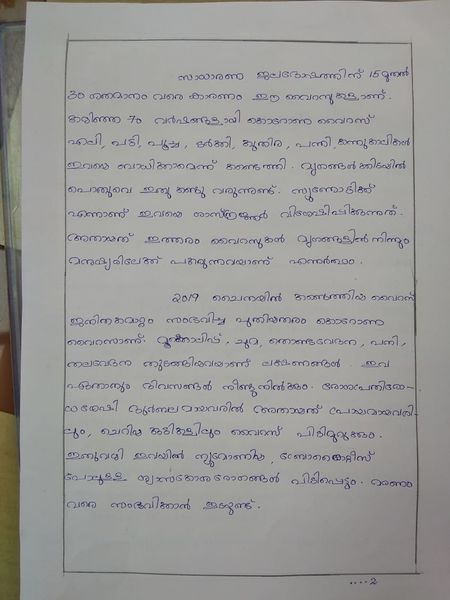 സാധാരണ ജലദോഷത്തിന് 15 മുതൽ
30 ശതമാനം വരെ കാരണം ഈ വൈറസുകളാണ്.
കഴിഞ്ഞ 70 വർഷങ്ങളായി കൊറോണ വൈറസ്
എലി, പട്ടി, പൂച്ച, ടർക്കി, കുതിര, പന്നി, കന്നുകാലികൾ
ഇവയെ ബാധിക്കാമെന്ന് കണ്ടെത്തി. മൃഗങ്ങൾക്കിടയിൽ
പൊതുവെ ഇതു കണ്ടു വരുന്നുണ്ട്. സൂണോട്ടിക്
എന്നാണ് ഇവയെ ശാസ്ത്രജ്ഞർ വിശേഷിപ്പിക്കുന്നത്.
അതായത് ഇത്തരം വൈറസുകൾ മൃഗങ്ങളിൽ നിന്നും
മനുഷ്യരിലേക്ക് പകരുന്നവയാണ് എന്നർത്ഥം.
2019 ചൈനയിൽ കണ്ടെത്തിയ വൈറസ്
ജനിതകമാറ്റം സംഭവിച്ച പുതിയതരം കൊറോണ
വൈറസാണ്. മൂക്കൊലിപ്പ്, ചുമ, തൊണ്ടവേദന, പനി,
തലവേദന തുടങ്ങിയവയാണ് ലക്ഷണങ്ങൾ. ഇവ
ഏതാനും ദിവസങ്ങൾ നീണ്ടുനിൽക്കും. രോഗപ്രതിരോ-
ധശേഷി ദുർബലമായവരിൽ അതായത് പ്രായമായവരി
ലും, ചെറിയ കുട്ടികളിലും വൈറസ് പിടിമുറുക്കും.
ഇതുവഴി ഇവയിൽ ന്യുമോണിയ, ബ്രോങ്കൈറ്റീസ്
പോലുള്ള ശ്വാസകോശ രോഗങ്ങൾ പിടിപ്പെടും. മരണം
വരെ സംഭവിക്കാൻ ഇടയുണ്ട്.
....2